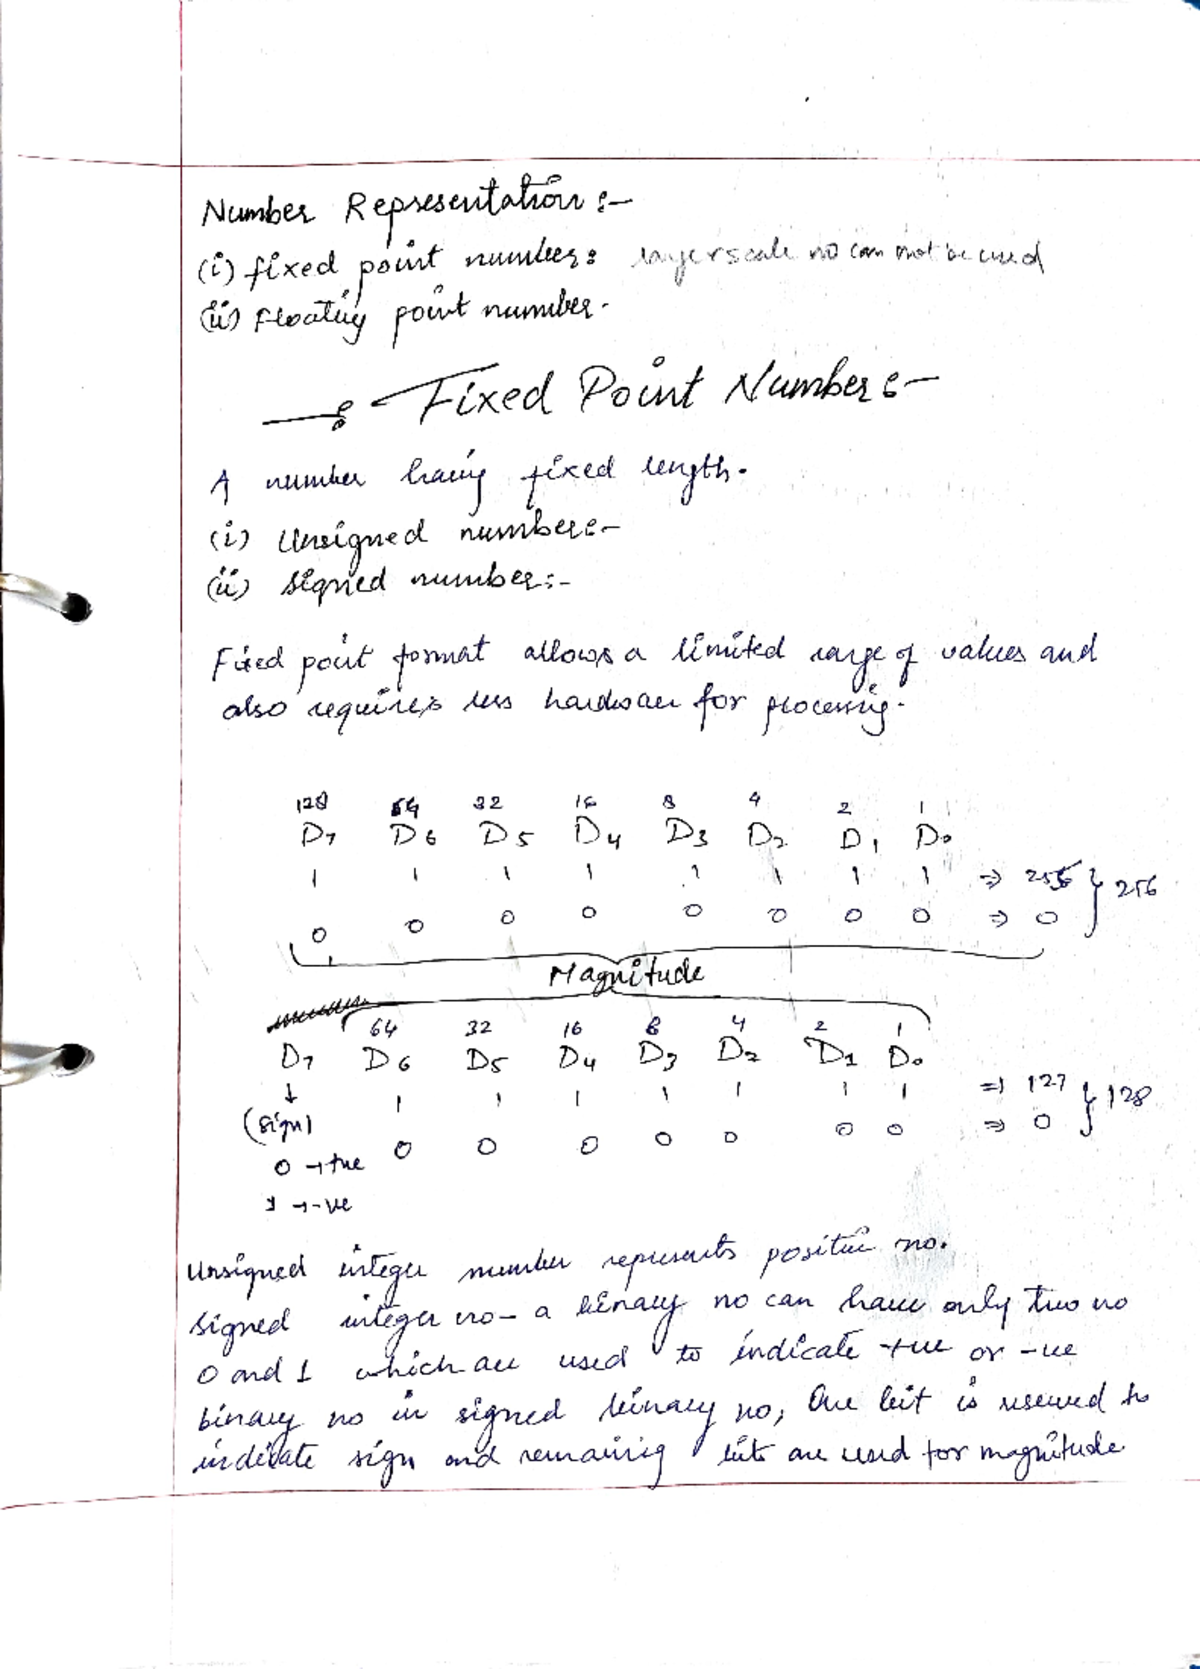 Number Representation :-
(i) fixed point number: largerscale no can not be used
(ii) Floating point number.
Fixed Point Number :-
A number having fixed length.
(i) Unsigned number :-
(ii) signed number :-
Fixed point format allows a limited range of values and
also requires less hardware for processing.
128 64 32 16 8 4 2 1
D7 D6 D5 D4 D3 D2 D1 D0
1 1 1 1 1 1 1 1 => 255 } 256
0 0 0 0 0 0 0 0 => 0
Magnitude
64 32 16 8 4 2 1
D7 D6 D5 D4 D3 D2 D1 D0
↓ 1 1 1 1 1 1 1 => 127 } 128
(sign) 0 0 0 0 0 0 0 => 0
0 → +ve
1 → -ve
Unsigned integer number represents positive no.
signed integer no - a binary no can have only two no
0 and 1 which are used to indicate +ve or -ve
binary no in signed binary no, One bit is reserved to
indicate sign and remaining bits are used for magnitude